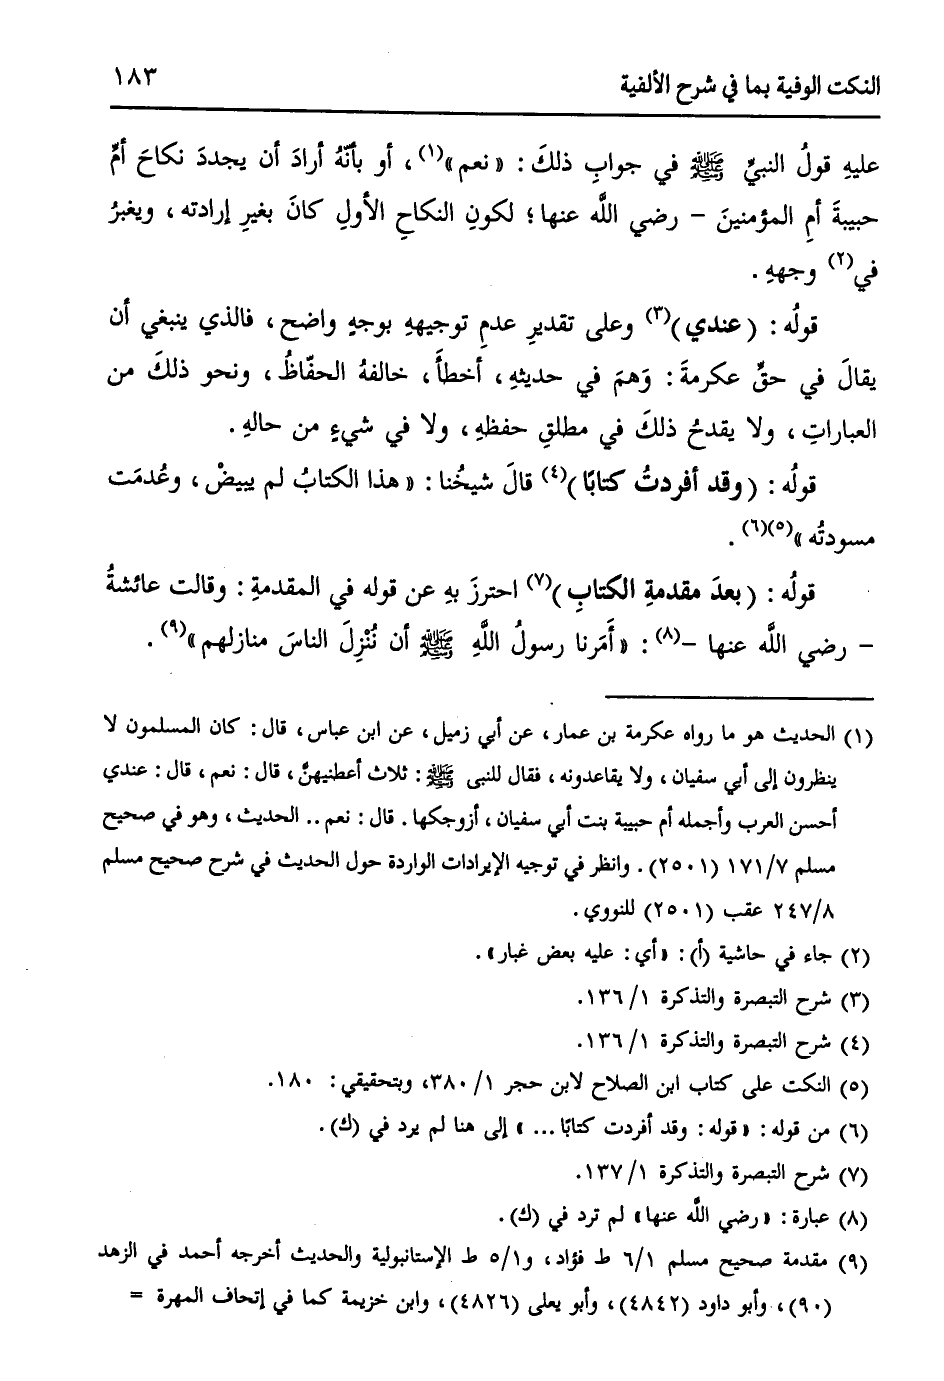 النكت الوفية بما في شرح الألفية ١٨٣
عليهِ قولُ النبيِّ ﷺ في جوابِ ذلكَ : « نعم »(١) ، أو بأنَّهُ أرادَ أن يجددَ نكاحَ أمِّ
حبيبةَ أمِ المؤمنينَ – رضي اللَّه عنها ؛ لكونِ النكاحِ الأولِ كانَ بغيرِ إرادته ، ويغبرُ
في(٢) وجههِ .
قولُه : ( عندي )(٣) وعلى تقديرِ عدمِ توجيههِ بوجهٍ واضح ، فالذي ينبغي أن
يقالَ في حقِّ عكرمةَ : وَهمَ في حديثهِ ، أخطأَ ، خالفهُ الحفّاظُ ، ونحو ذلكَ من
العباراتِ ، ولا يقدحُ ذلكَ في مطلقِ حفظهِ ، ولا في شيءٍ من حالهِ .
قولُه : ( وقد أفردتُ كتابًا )(٤) قالَ شيخُنا : « هذا الكتابُ لم يبيضْ ، وعُدمَت
مسودتُه »(٥)(٦) .
قولُه : ( بعدَ مقدمةِ الكتابِ )(٧) احترزَ بهِ عن قوله في المقدمةِ : وقالت عائشةُ
– رضي اللَّه عنها –(٨) : « أَمَرنا رسولُ اللَّهِ ﷺ أن نُنْزِلَ الناسَ منازلهم »(٩) .
(١) الحديث هو ما رواه عكرمة بن عمار ، عن أبي زميل ، عن ابن عباس ، قال : كان المسلمون لا
ينظرون إلى أبي سفيان ، ولا يقاعدونه ، فقال للنبى ﷺ : ثلاث أعطنيهنَّ ، قال : نعم ، قال : عندي
أحسن العرب وأجمله أم حبيبة بنت أبي سفيان ، أزوجكها . قال : نعم .. الحديث ، وهو في صحيح
مسلم ١٧١/٧ (٢٥٠١) . وانظر في توجيه الإيرادات الواردة حول الحديث في شرح صحيح مسلم
٢٤٧/٨ عقب (٢٥٠١) للنووي .
(٢) جاء في حاشية (أ) : « أي : عليه بعض غبار » .
(٣) شرح التبصرة والتذكرة ١/ ١٣٦.
(٤) شرح التبصرة والتذكرة ١/ ١٣٦.
(٥) النكت على كتاب ابن الصلاح لابن حجر ١/ ٣٨٠، وبتحقيقي : ١٨٠.
(٦) من قوله : « قوله : وقد أفردت كتابًا ... » إلى هنا لم يرد في (ك) .
(٧) شرح التبصرة والتذكرة ١/ ١٣٧.
(٨) عبارة : « رضي اللَّه عنها » لم ترد في (ك) .
(٩) مقدمة صحيح مسلم ٦/١ ط فؤاد ، و٥/١ ط الإستانبولية والحديث أخرجه أحمد في الزهد
(٩٠) ، وأبو داود (٤٨٤٢) ، وأبو يعلى (٤٨٢٦) ، وابن خزيمة كما في إتحاف المهرة =